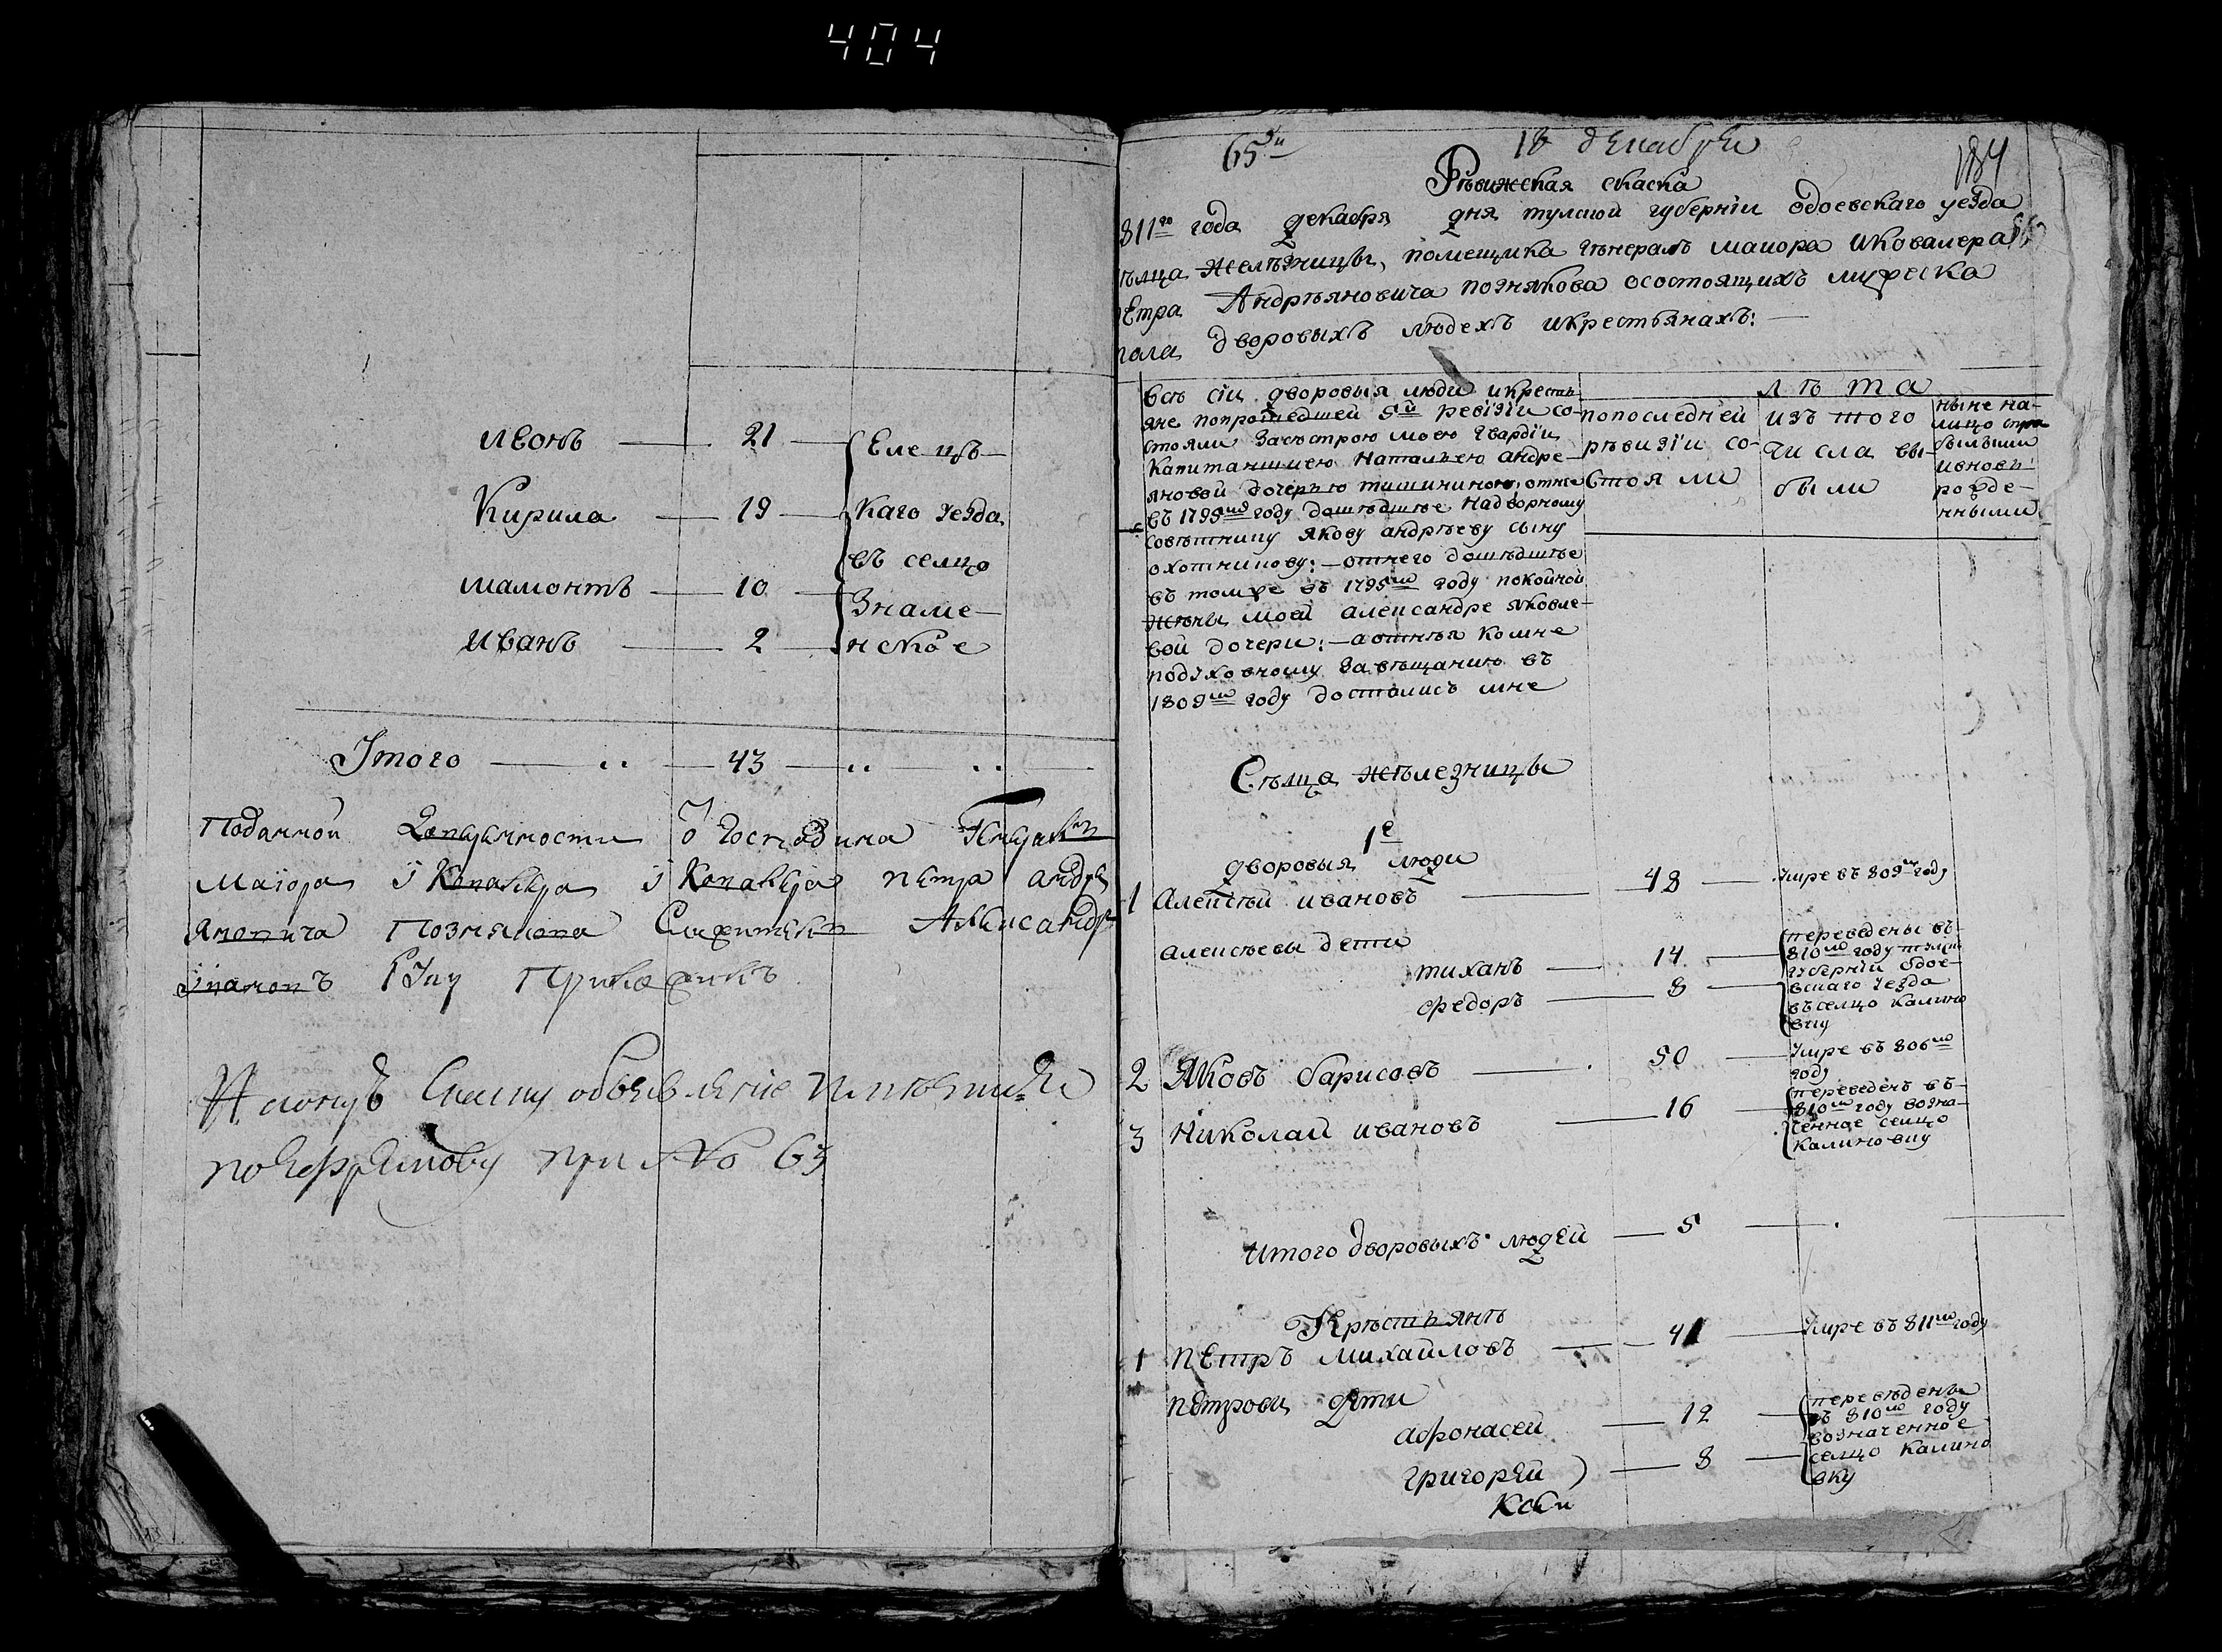 404
Леонъ — 21 — Елецъ-
Кирила — 19 — каго уезда
въ селцо
Мамонтъ — 10 — Знаме-
Иванъ — 2 — нское
Итого — 43
Поданной Господина
Маiора i Кавалера i Кавалера Петра Андре
яновича Познякова Александръ
Ивановъ руку приложилъ
при № 65
65й 18 декабря 184
Ревижская скаска
811го года декабря дня тулской губернiи одоевскаго уезда
селца желѣзницы, помещика генералъ маиора икавалера
Петра Андрѣяновича познякова осостоящихъ мужеска
пола дворовыхъ людехъ икрестьянахъ: —
Всѣ сiи дворовыя люди икресть
яне попрошедшей 5й ревiзiи со-
стояли засестрою моею гвардiи
капитаншиею Натальею андре-
яновой дочерью тишининою, отнее
въ 1795мъ году дошѣдшѣе надворному
совѣтнику якову андрѣеву сыну
охотникову: — отнего дошѣдшѣе
въ томже въ 1795мъ году покойной
жены моей александре яковле-
вой дочери: — аотнѣя комне
подуховному завѣщанию въ
1809мъ году достались мне
лѣта
попоследней рѣвизiи состояли
изъ того числа выбыли
ныне на-
лицо
Сѣлца желѣзницы
1е
дворовыя люди
1 Алексѣй ивановъ — 48 — умре въ 809м году
алексѣевы дети
тиханъ — 14 — переведены въ
810мъ году тулск
губернiи одое-
федоръ — 8 — вскаго уезда
въселцо калино
вку
2 Яковъ барисовъ — 50 — умре въ 806мъ
году
3 Николай ивановъ — 16 — переведенъ въ
810мъ году возна-
ченное селцо
калиновку
итого дворовыхъ людей — 5
Крѣстьянѣ
1 петръ михайловъ — 41 — умре въ 811мъ году
петровы дѣти
афонасей — 12 — перевѣдены
въ 810мъ году
возначенное
григорей — 8 — селцо калино
вку